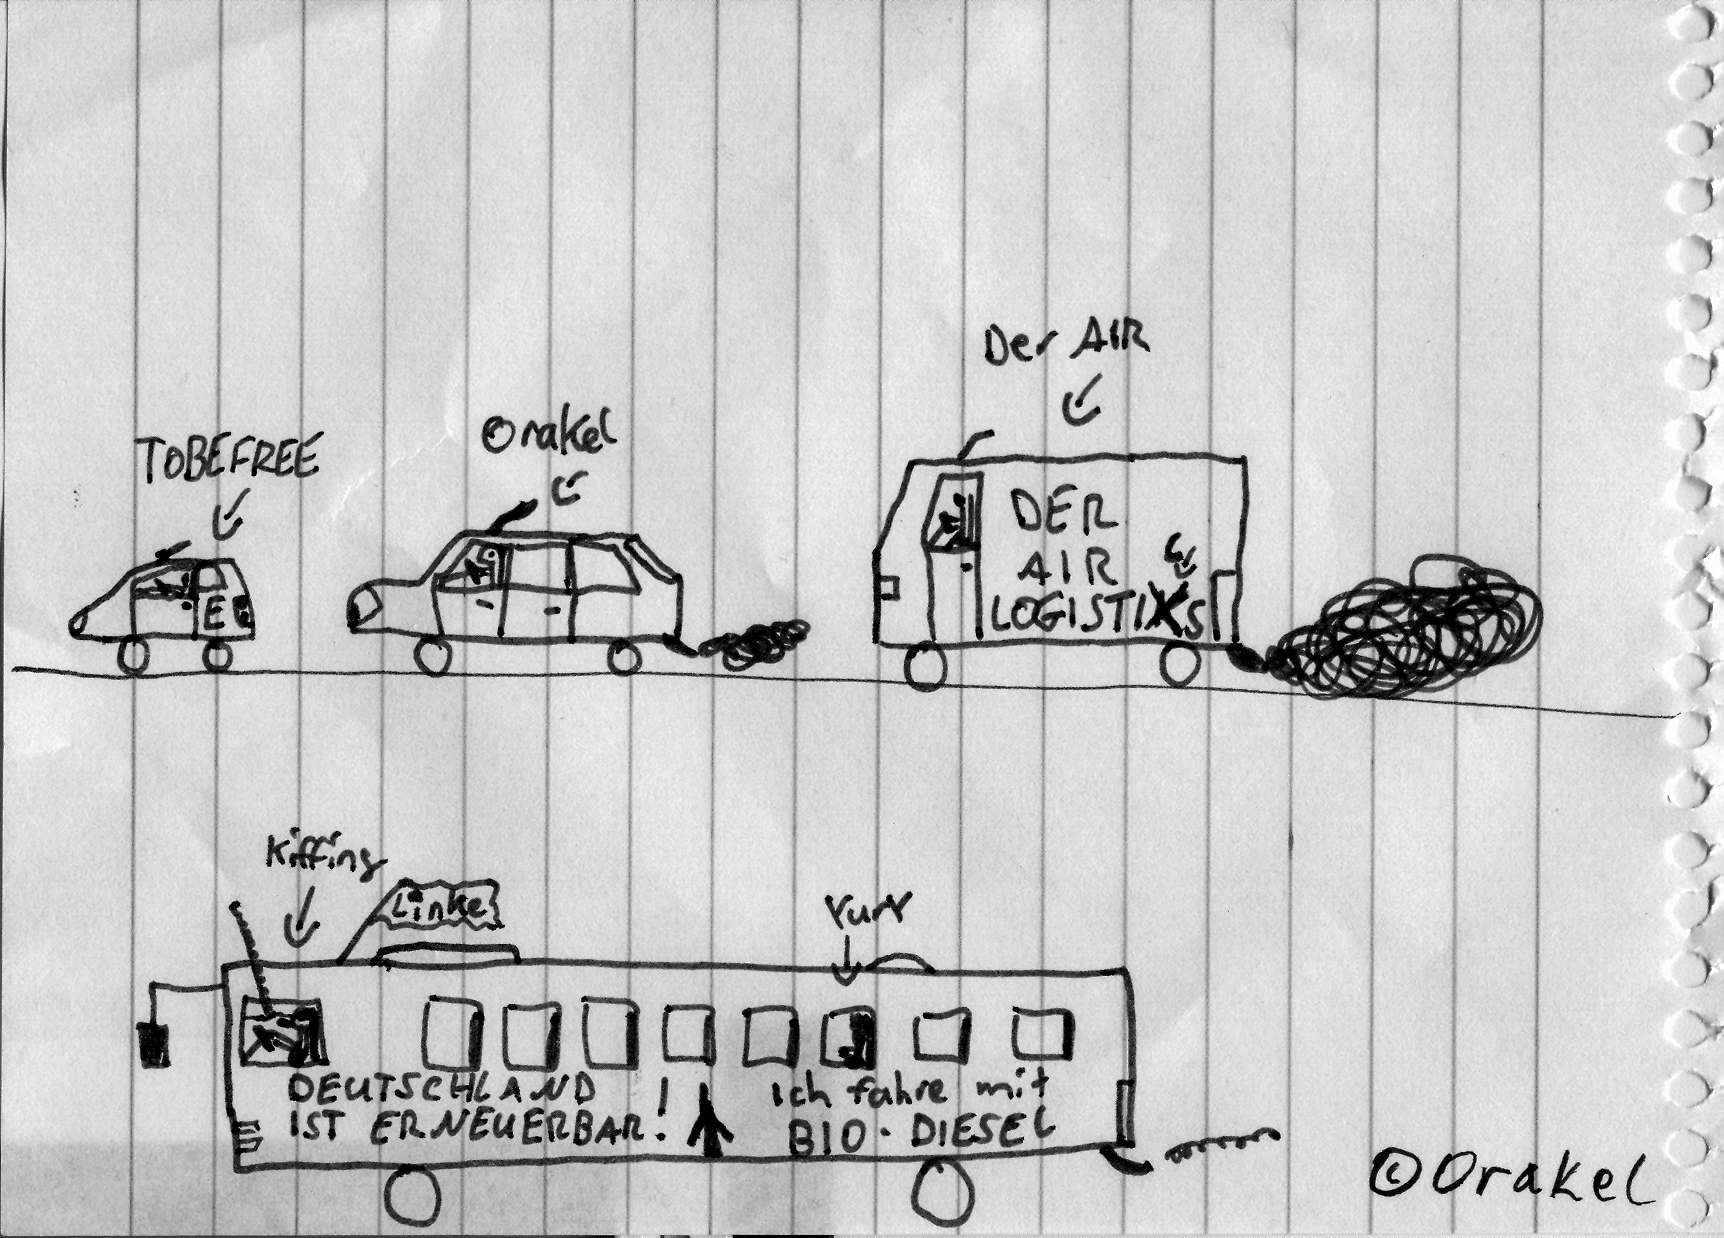 Der AIR
Orakel
TOBEFREE
E
DER
AIR
LOGISTIXS
Kiffing
Linke
Yurr
DEUTSCHLAND
IST ERNEUERBAR!
Ich fahre mit
BIO-DIESEL
©Orakel